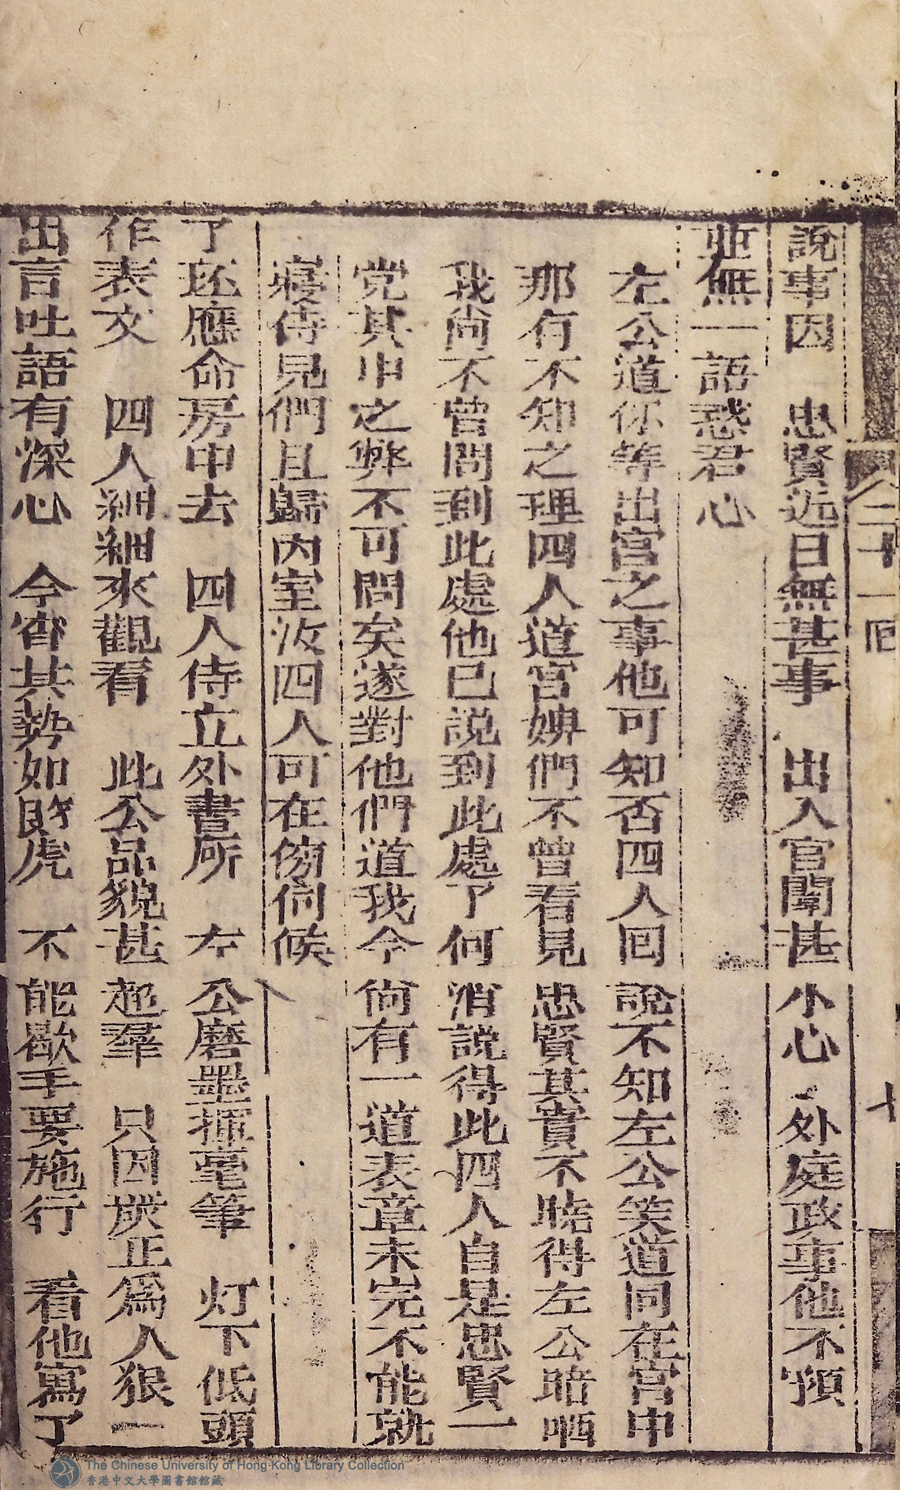 二十一囘
七
說事因　忠賢近日無甚事　出入宮闈甚小心　外庭政事他不預
並無一語惑君心
左公道你等出宮之事他可知否四人囘說不知左公笑道同在宮中
那有不知之理四人道宮婢們不曾看見忠賢其實不曉得左公暗哂
我尚不曾問到此處他已說到此處了何消說得此四人自是忠賢一
党其中之弊不可問矣遂對他們道我今尙有一道表章未完不能就
寢侍見們且歸內室汝四人可在傍伺候
了丕應命房中去　四人侍立外書所　左公磨墨揮毫筆　灯下低頭
作表文　四人細細來觀看　此公品貌甚超羣　只因㷎正爲人狠一
出言吐語有深心　今宵其勢如𧴦虎　不能歇手要施行　看他寫了
The Chinese University of Hong Kong Library Collection
香港中文大學圖書館館藏